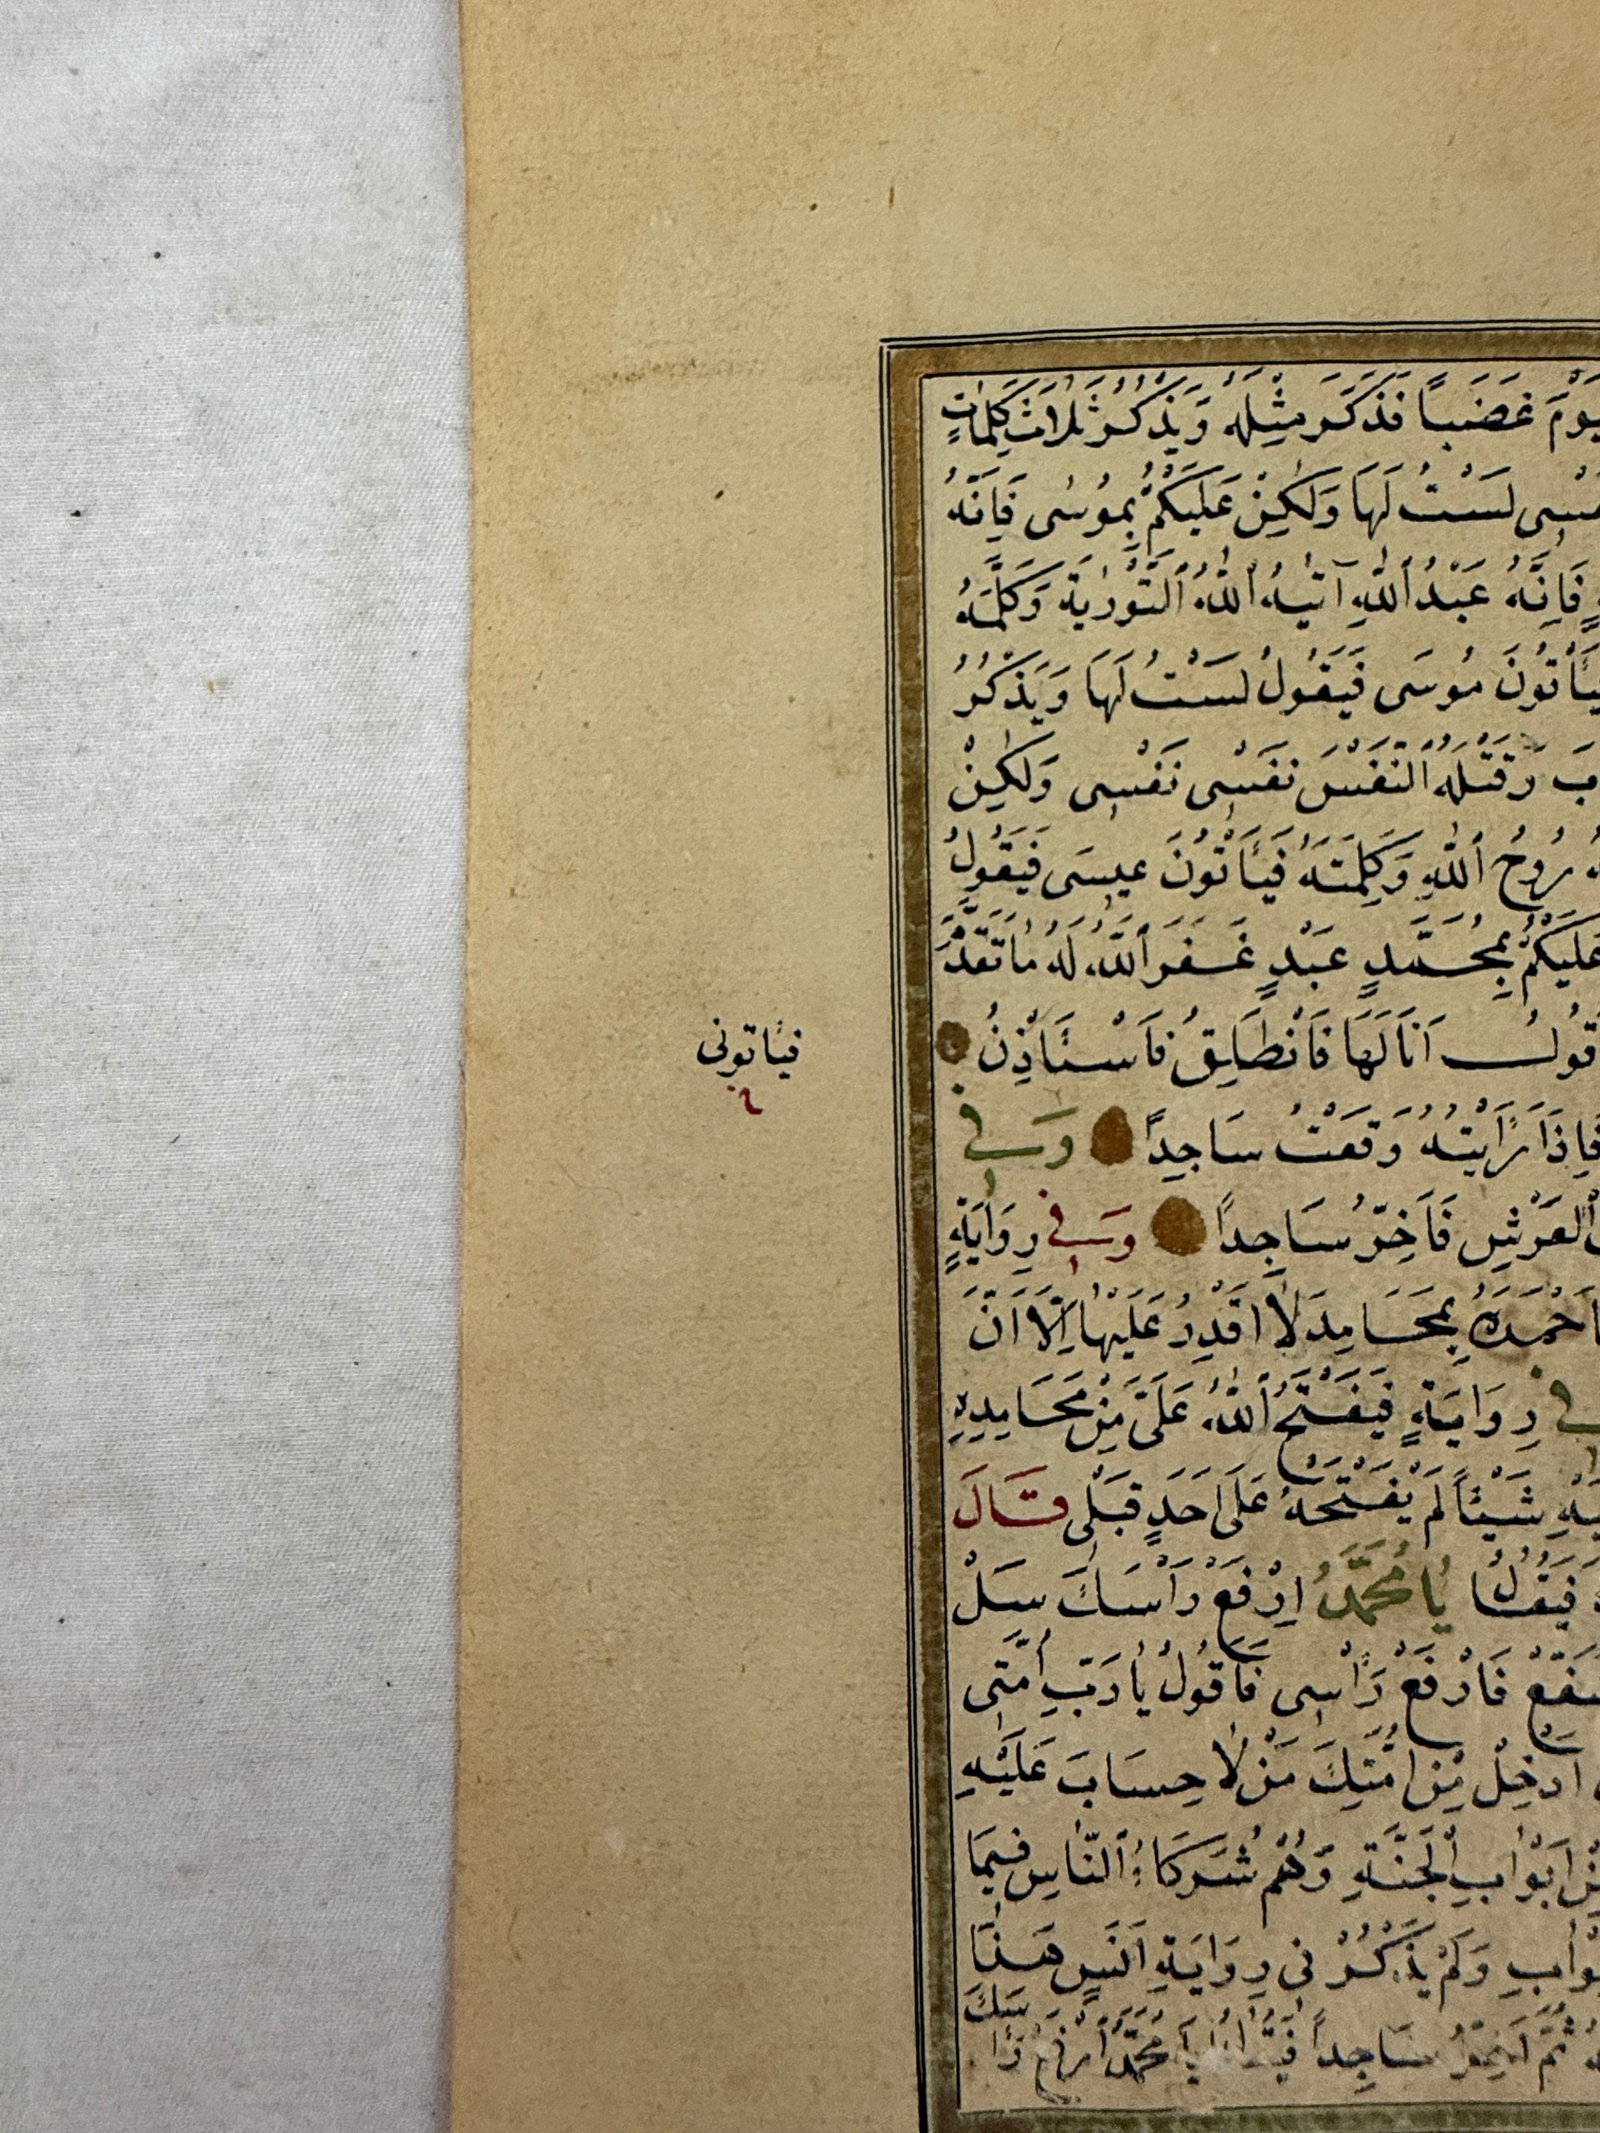 يَوْمَ غَضَباً فَذَكَرَ مِثْلَهُ وَيَذْكُرُ ثَلَاثَ كَلِمَاتٍ
لَسْتُ لَهَا وَلٰكِنْ عَلَيْكُمْ بِمُوسٰى فَاِنَّهُ
فَاِنَّهُ عَبْدُ ٱللّٰهِ آتٰيهُ ٱللّٰهُ ٱلتَّوْرٰيةَ وَكَلَّمَهُ
مُوسَى فَيَقُولُ لَسْتُ لَهَا وَيَذْكُرُ
وَقَتْلَهُ ٱلنَّفْسَ نَفْسِى نَفْسِى وَلٰكِنْ
رُوحُ ٱللّٰهِ وَكَلِمَتُهُ فَيَأْتُونَ عِيسَى فَيَقُولُ
عَلَيْكُمْ بِمُحَمَّدٍ عَبْدٍ غَفَرَ ٱللّٰهُ لَهُ مٰا تَقَدَّمَ
اَنَا لَهَا فَاَنْطَلِقُ فَاَسْتَأْذِنُ
فيأتونى
فَاِذَا رَأَيْتُهُ وَقَعْتُ سَاجِداً وَفِي
ٱلْعَرْشِ فَاَخِرُّ سَاجِداً وَفِي رِوَايَةٍ
بِمَحَامِدَ لٰا اَقْدِرُ عَلَيْهٰا اِلَّا اَنَّ
رِوَايَةٍ فَيَفْتَحُ ٱللّٰهُ عَلَىَّ مِنْ مَحَامِدِهِ
شَيْئاً لَمْ يَفْتَحْهُ عَلَى اَحَدٍ قَبْلِى قَالَ
فَيُقٰالُ يٰا مُحَمَّدُ اِرْفَعْ رَأْسَكَ سَلْ
فَاَرْفَعُ رَأْسِى فَاَقُولُ يٰا رَبِّ اُمَّتِى
اَدْخِلْ مِنْ اُمَّتِكَ مَنْ لٰا حِسَابَ عَلَيْهِ
اَبْوٰابِ ٱلْجَنَّةِ وَهُمْ شُرَكَاءُ ٱلنَّاسِ فِيمَا
وَلَمْ يَذْكُرْ فِى رِوَايَةِ اَنَسٍ هٰذَا
ثُمَّ اَخِرُّ سَاجِداً فَيُقٰالُ يَا مُحَمَّدُ ٱرْفَعْ رَأْسَكَ